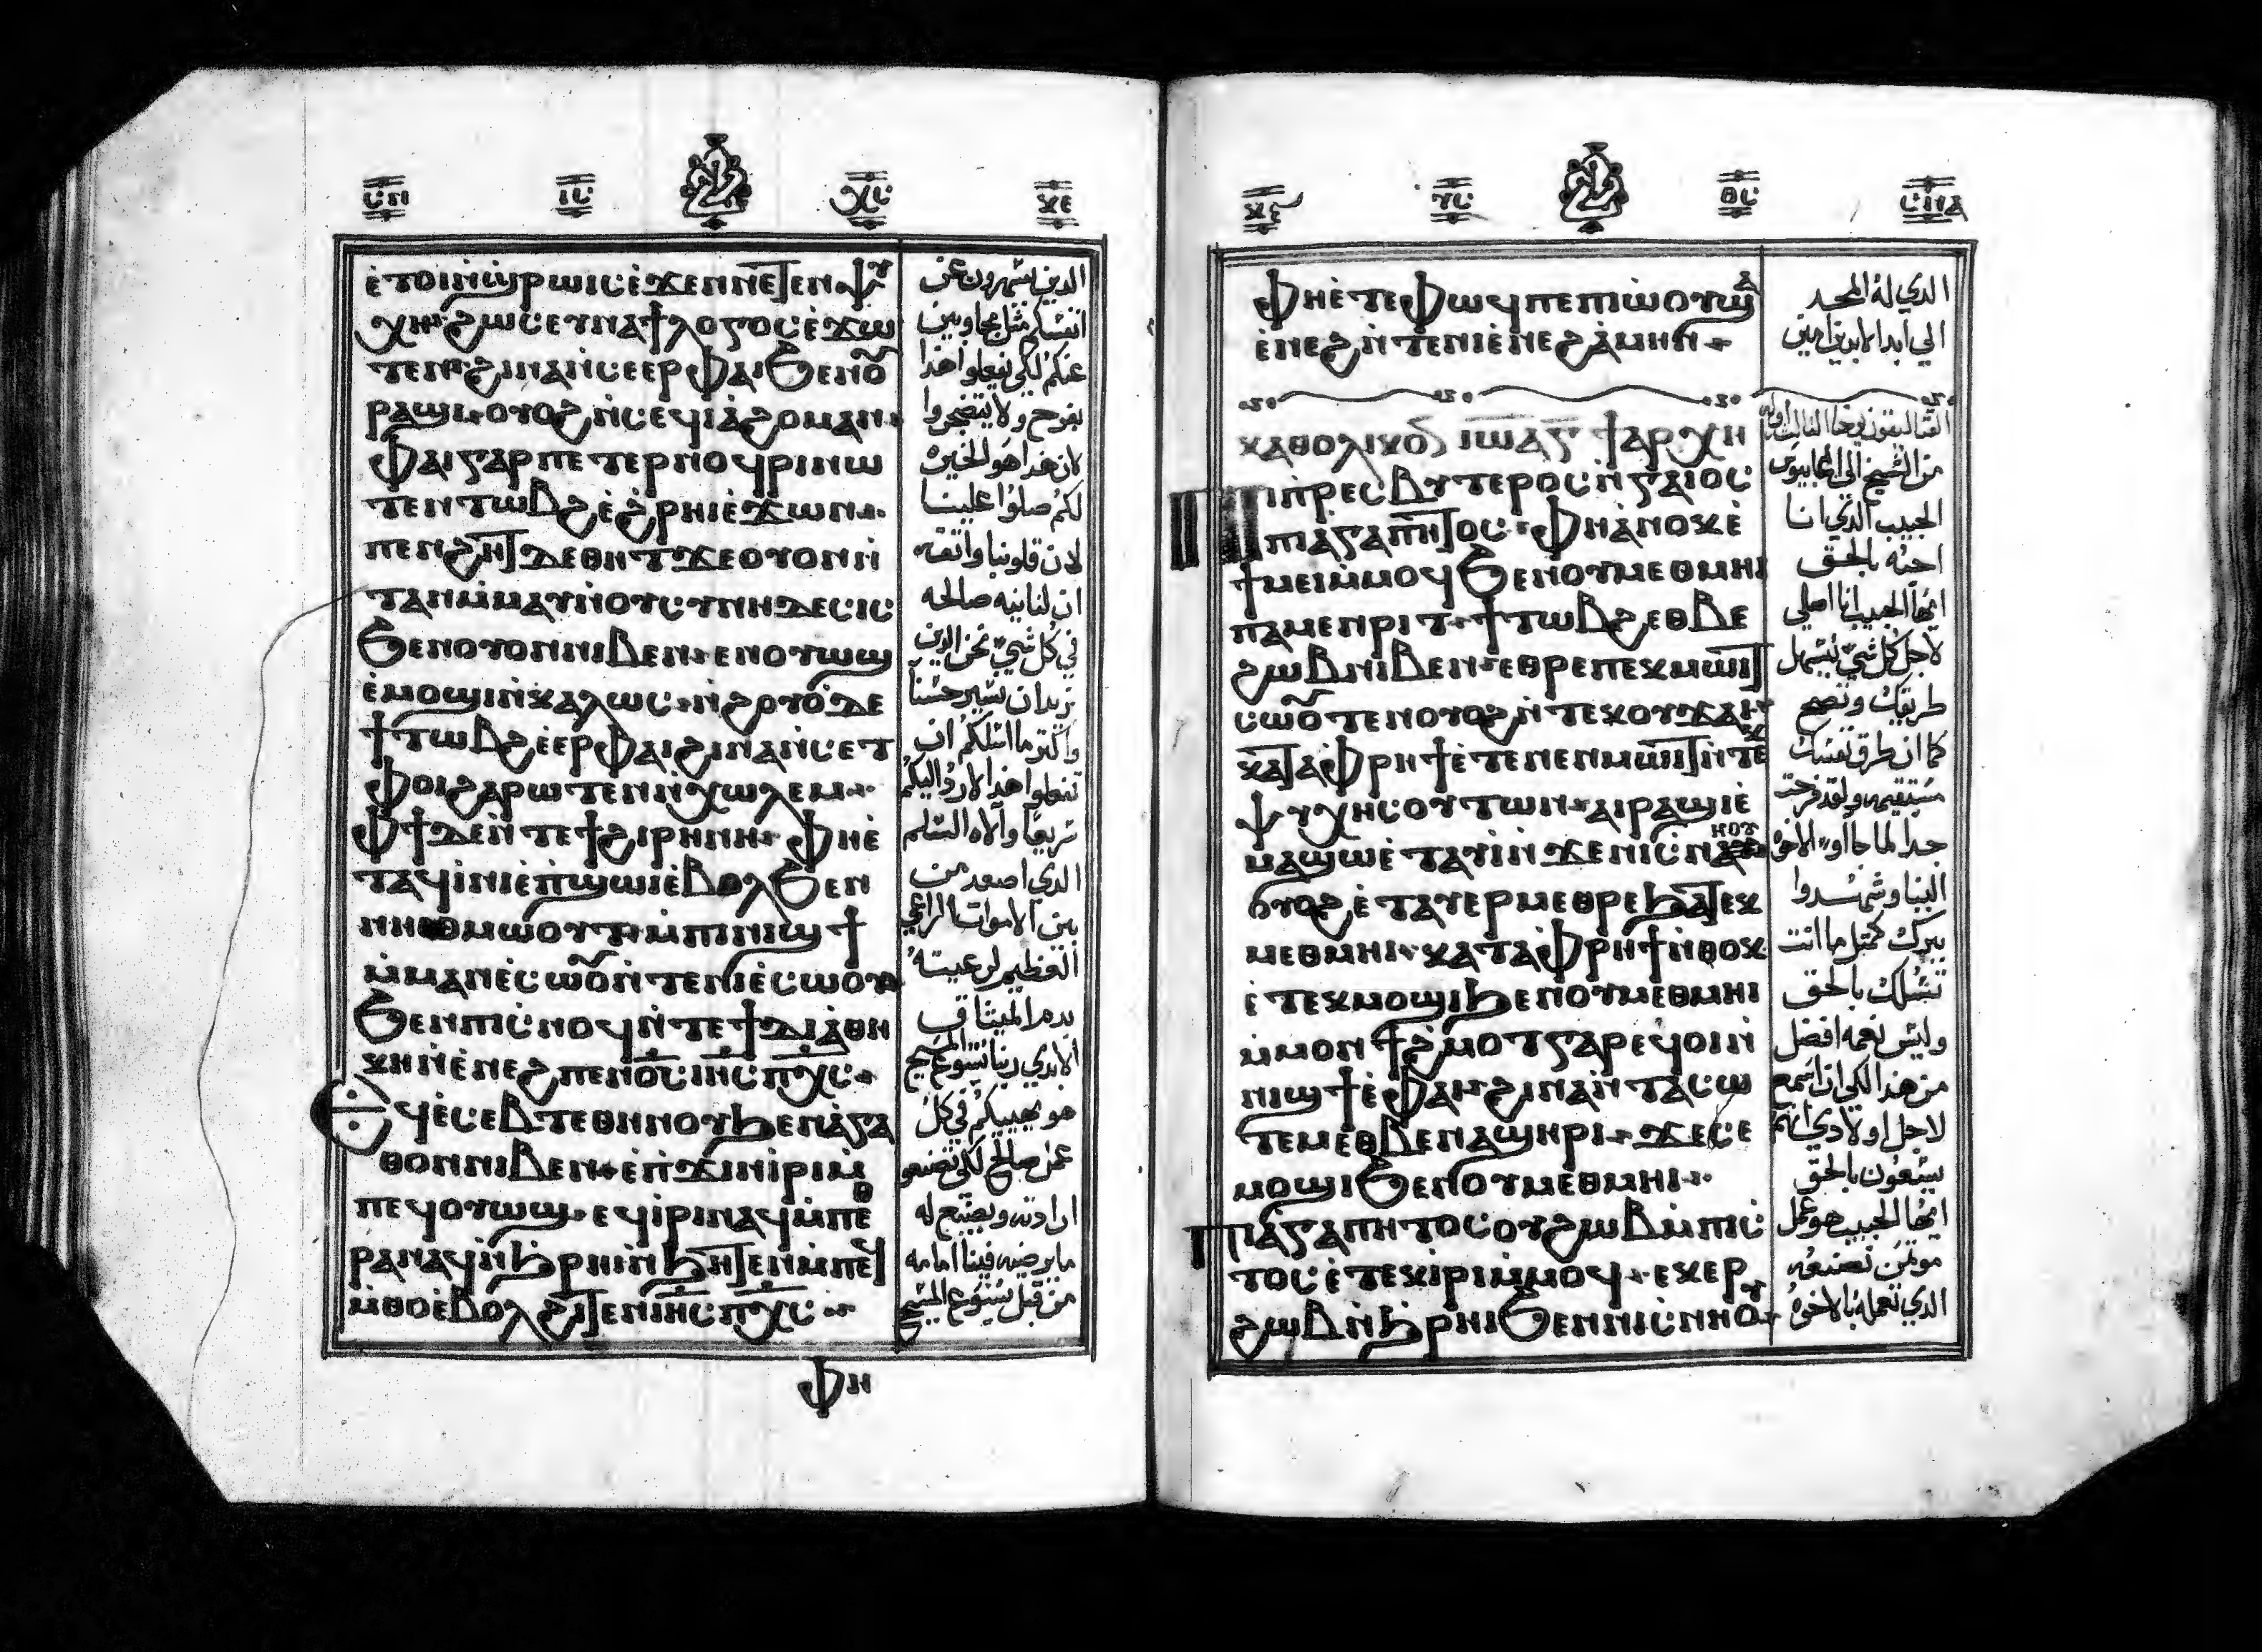 ⲉ̀ⲧⲟⲓⲛ̀ϣⲣⲱⲓⲥⲉ̀ϫⲉⲛⲛⲉⲧⲉⲛⲯⲩ
ⲭⲏ ϩⲱⲥⲉⲩⲛⲁϯⲗⲟⲅⲟⲥⲉ̀ϫⲱ
ⲧⲉⲛ ϩⲓⲛⲁⲛ̀ⲥⲉⲉⲣⲫⲁⲓϧⲉⲛⲟⲩ
ⲣⲁϣⲓ ⲟⲩⲟϩⲛ̀ⲥⲉϥⲓⲁ̀ϩⲟⲙⲁⲛ
ⲫⲁⲓⲅⲁⲣⲡⲉⲧⲉⲣⲛⲟϥⲣⲓⲛⲱ
ⲧⲉⲛⲧⲱⲃϩⲉ̀ϩⲣⲏⲓⲉ̀ϫⲱⲛ
ⲡⲉⲛϩⲏⲧⲇⲉⲑⲏⲧϫⲉⲟⲩⲟⲛⲛ̀
ⲧⲁⲛⲙ̀ⲙⲁⲩⲛ̀ⲟⲩⲥⲩⲛⲏⲇⲉⲥⲓⲥ
ϧⲉⲛⲟⲩⲟⲛⲛⲓⲃⲉⲛ ⲉⲛⲟⲩⲱϣ
ⲉ̀ⲙⲟϣⲓⲛ̀ⲕⲁⲗⲱⲥ ⲛ̀ϩⲟⲩⲟ̀ⲇⲉ
ϯⲧⲱⲃϩⲉ̀ⲉⲣⲫⲁⲓϩⲓⲛⲁⲛ̀ⲥⲉⲧ
ⲫⲟⲓϩⲁⲣⲱⲧⲉⲛⲛ̀ⲭⲱⲗⲉⲙ
ⲫϯⲇⲉⲛ̀ⲧⲉϯϩⲓⲣⲏⲛⲏ ⲫⲏⲉ̀
ⲧⲁϥⲓ̀ⲛⲓⲉ̀ⲡ̀ϣⲱⲓⲉ̀ⲃⲟⲗϧⲉⲛ
ⲛⲏⲉⲑⲙⲱⲟⲩⲧ ⲙ̀ⲡⲓⲛⲓϣϯ
ⲙ̀ⲙⲁⲛⲉ̀ⲥⲱⲟⲩⲛ̀ⲧⲉⲛⲓⲉ̀ⲥⲱⲟⲩ
ϧⲉⲛⲡⲓⲥ̀ⲛⲟϥⲛ̀ⲧⲉϯⲇⲓⲁ̀ⲑⲏ
ⲕⲏⲛ̀ⲉ̀ⲛⲉϩⲡⲉⲛⲟ̅ⲥ̅ⲓⲏ̅ⲥ̅ⲡⲭ̅ⲥ̅
ⲉϥⲉ̀ⲥⲉⲃⲧⲉⲑⲏⲛⲟⲩϧⲉⲛⲁ̀ⲅⲁ
ⲑⲟⲛⲛⲓⲃⲉⲛ ⲉ̀ⲡ̀ϫⲓⲛⲓ̀ⲣⲓⲙ̀
ⲡⲉϥⲟⲩⲱϣ ⲉϥⲓ̀ⲣⲓⲛⲁϥⲙ̀ⲡⲉⲑ
ⲣⲁⲛⲁϥⲛ̀ϧⲣⲏⲓⲛ̀ϧⲏⲧⲉⲛⲙ̀ⲡⲉϥ
ⲙ̀ⲑⲟⲉ̀ⲃⲟⲗϩⲓⲧⲉⲛⲓⲏ̅ⲥ̅ⲡⲭ̅ⲥ̅
ⲫⲏ
الدين يسهرون عن
انفسكم مثل مجاوبين
عنكم لكي يفعلوا هذا
بفرح ولا يتضجروا
لان هذا هو الخيرة
لكم صلوا علينا
لان قلوبنا واثقه
ان لنا نيه صالحه
في كل شي نحن الدين
نريد ان نسير حسنا
واكثر ما اسلكم ان
تفعلوا هذا لارد اليكم
سريعا والاه السلم
الدي اصعد من
بين الاموات الراعي
العظيم لرعيته
بدم الميثاق
الابدي ربنا يسوع المسيح
هو يهييكم في كل
عمل صالح لكي تصنعوا
ارادته ويصنع له
ما يرضيه فينا امامه
من قبل يسوع المسيح
ⲫⲏⲉ̀ⲧⲉⲫⲱϥⲡⲉⲡⲓⲱ̀ⲟⲩϣⲁ
ⲉ̀ⲛⲉϩⲛ̀ⲧⲉⲛⲓⲉ̀ⲛⲉϩⲁ̀ⲙⲏⲛ
ⲕⲁⲑⲟⲗⲓⲕⲟⲛ ⲓⲱⲁ ⲅ̅ ϯⲁⲣⲭⲏ
ⲡⲓⲡ̀ⲣⲉⲥⲃⲩⲧⲉⲣⲟⲥⲛ̀ⲅⲁⲓⲟⲥ
ⲡⲓⲁ̀ⲅⲁⲡⲏⲧⲟⲥ ⲫⲏⲁ̀ⲛⲟⲕⲉ̀
ϯⲙⲉⲓⲙ̀ⲙⲟϥϧⲉⲛⲟⲩⲙⲉⲑⲙⲏⲓ
ⲡⲁⲙⲉⲛⲣⲓⲧ ϯⲧⲱⲃϩⲉⲑⲃⲉ
ϩⲱⲃⲛⲓⲃⲉⲛ ⲉⲑⲣⲉⲡⲉⲕⲙⲱⲓⲧ
ⲥⲱⲟⲩⲧⲉⲛⲟⲩⲟϩⲛ̀ⲧⲉⲕⲟⲩϫⲁⲓ
ⲕⲁⲧⲁⲫ̀ⲣⲏϯⲉ̀ⲧⲉⲛⲉⲛⲙⲱⲓⲧⲛ̀ⲧⲉⲕ
ⲯⲩⲭⲏⲥⲟⲩⲧⲱⲛ ⲁⲓⲣⲁϣⲓⲉ̀
ⲙⲁϣⲱⲉ̀ⲧⲁⲩⲓ̀ⲛ̀ϫⲉⲛⲓⲥ̀ⲛⲏⲟⲩ
ⲟⲩⲟϩⲉ̀ⲧⲁⲩⲉⲣⲙⲉⲑⲣⲉϧⲁⲧⲉⲕ
ⲙⲉⲑⲙⲏⲓ ⲕⲁⲧⲁⲫ̀ⲣⲏϯⲛ̀ⲑⲟⲕ
ⲉ̀ⲧⲉⲕⲙⲟϣⲓϧⲉⲛⲟⲩⲙⲉⲑⲙⲏⲓ
ⲙ̀ⲙⲟⲛϯϩ̀ⲙⲟⲧⲅⲁⲣⲉϥⲟⲓⲛ̀
ⲛⲓϣϯⲉ̀ⲫⲁⲓ ϩⲓⲛⲁⲛ̀ⲧⲁⲥⲱ
ⲧⲉⲙⲉⲑⲃⲉⲛⲁϣⲏⲣⲓ ϫⲉⲥⲉ
ⲙⲟϣⲓϧⲉⲛⲟⲩⲙⲉⲑⲙⲏⲓ
ⲡⲓⲁ̀ⲅⲁⲡⲏⲧⲟⲥⲟⲩϩⲱⲃⲙ̀ⲡⲓⲥ
ⲧⲟⲥⲉ̀ⲧⲉⲕⲓ̀ⲣⲓⲙ̀ⲙⲟϥ ⲉⲕⲉⲣ
ϩⲱⲃⲛ̀ϧⲣⲏⲓϧⲉⲛⲛⲓⲥ̀ⲛⲏⲟⲩ
الدي له المجد
الي ابد الابدين امين
من الشيخ الى اغابيوس
الحبيب الدي انا
احبه بالحق
ايها الحبيب انا اصلي
لاجل كل شي تسهل
طريقك وتصح
كما ان طرق نفسك
مستقيمه ولقد فرحت
جدا لما جاوا الاخوة
الينا وشهدوا
ببرك كمثل ما انت
تسلك بالحق
وليس نعمه افضل
من هذا لكي ان اسمع
لاجل اولادي انهم
يسعون بالحق
ايها الحبيب هو عمل
مومن تصنعه
الدي تعمله بالاخوة